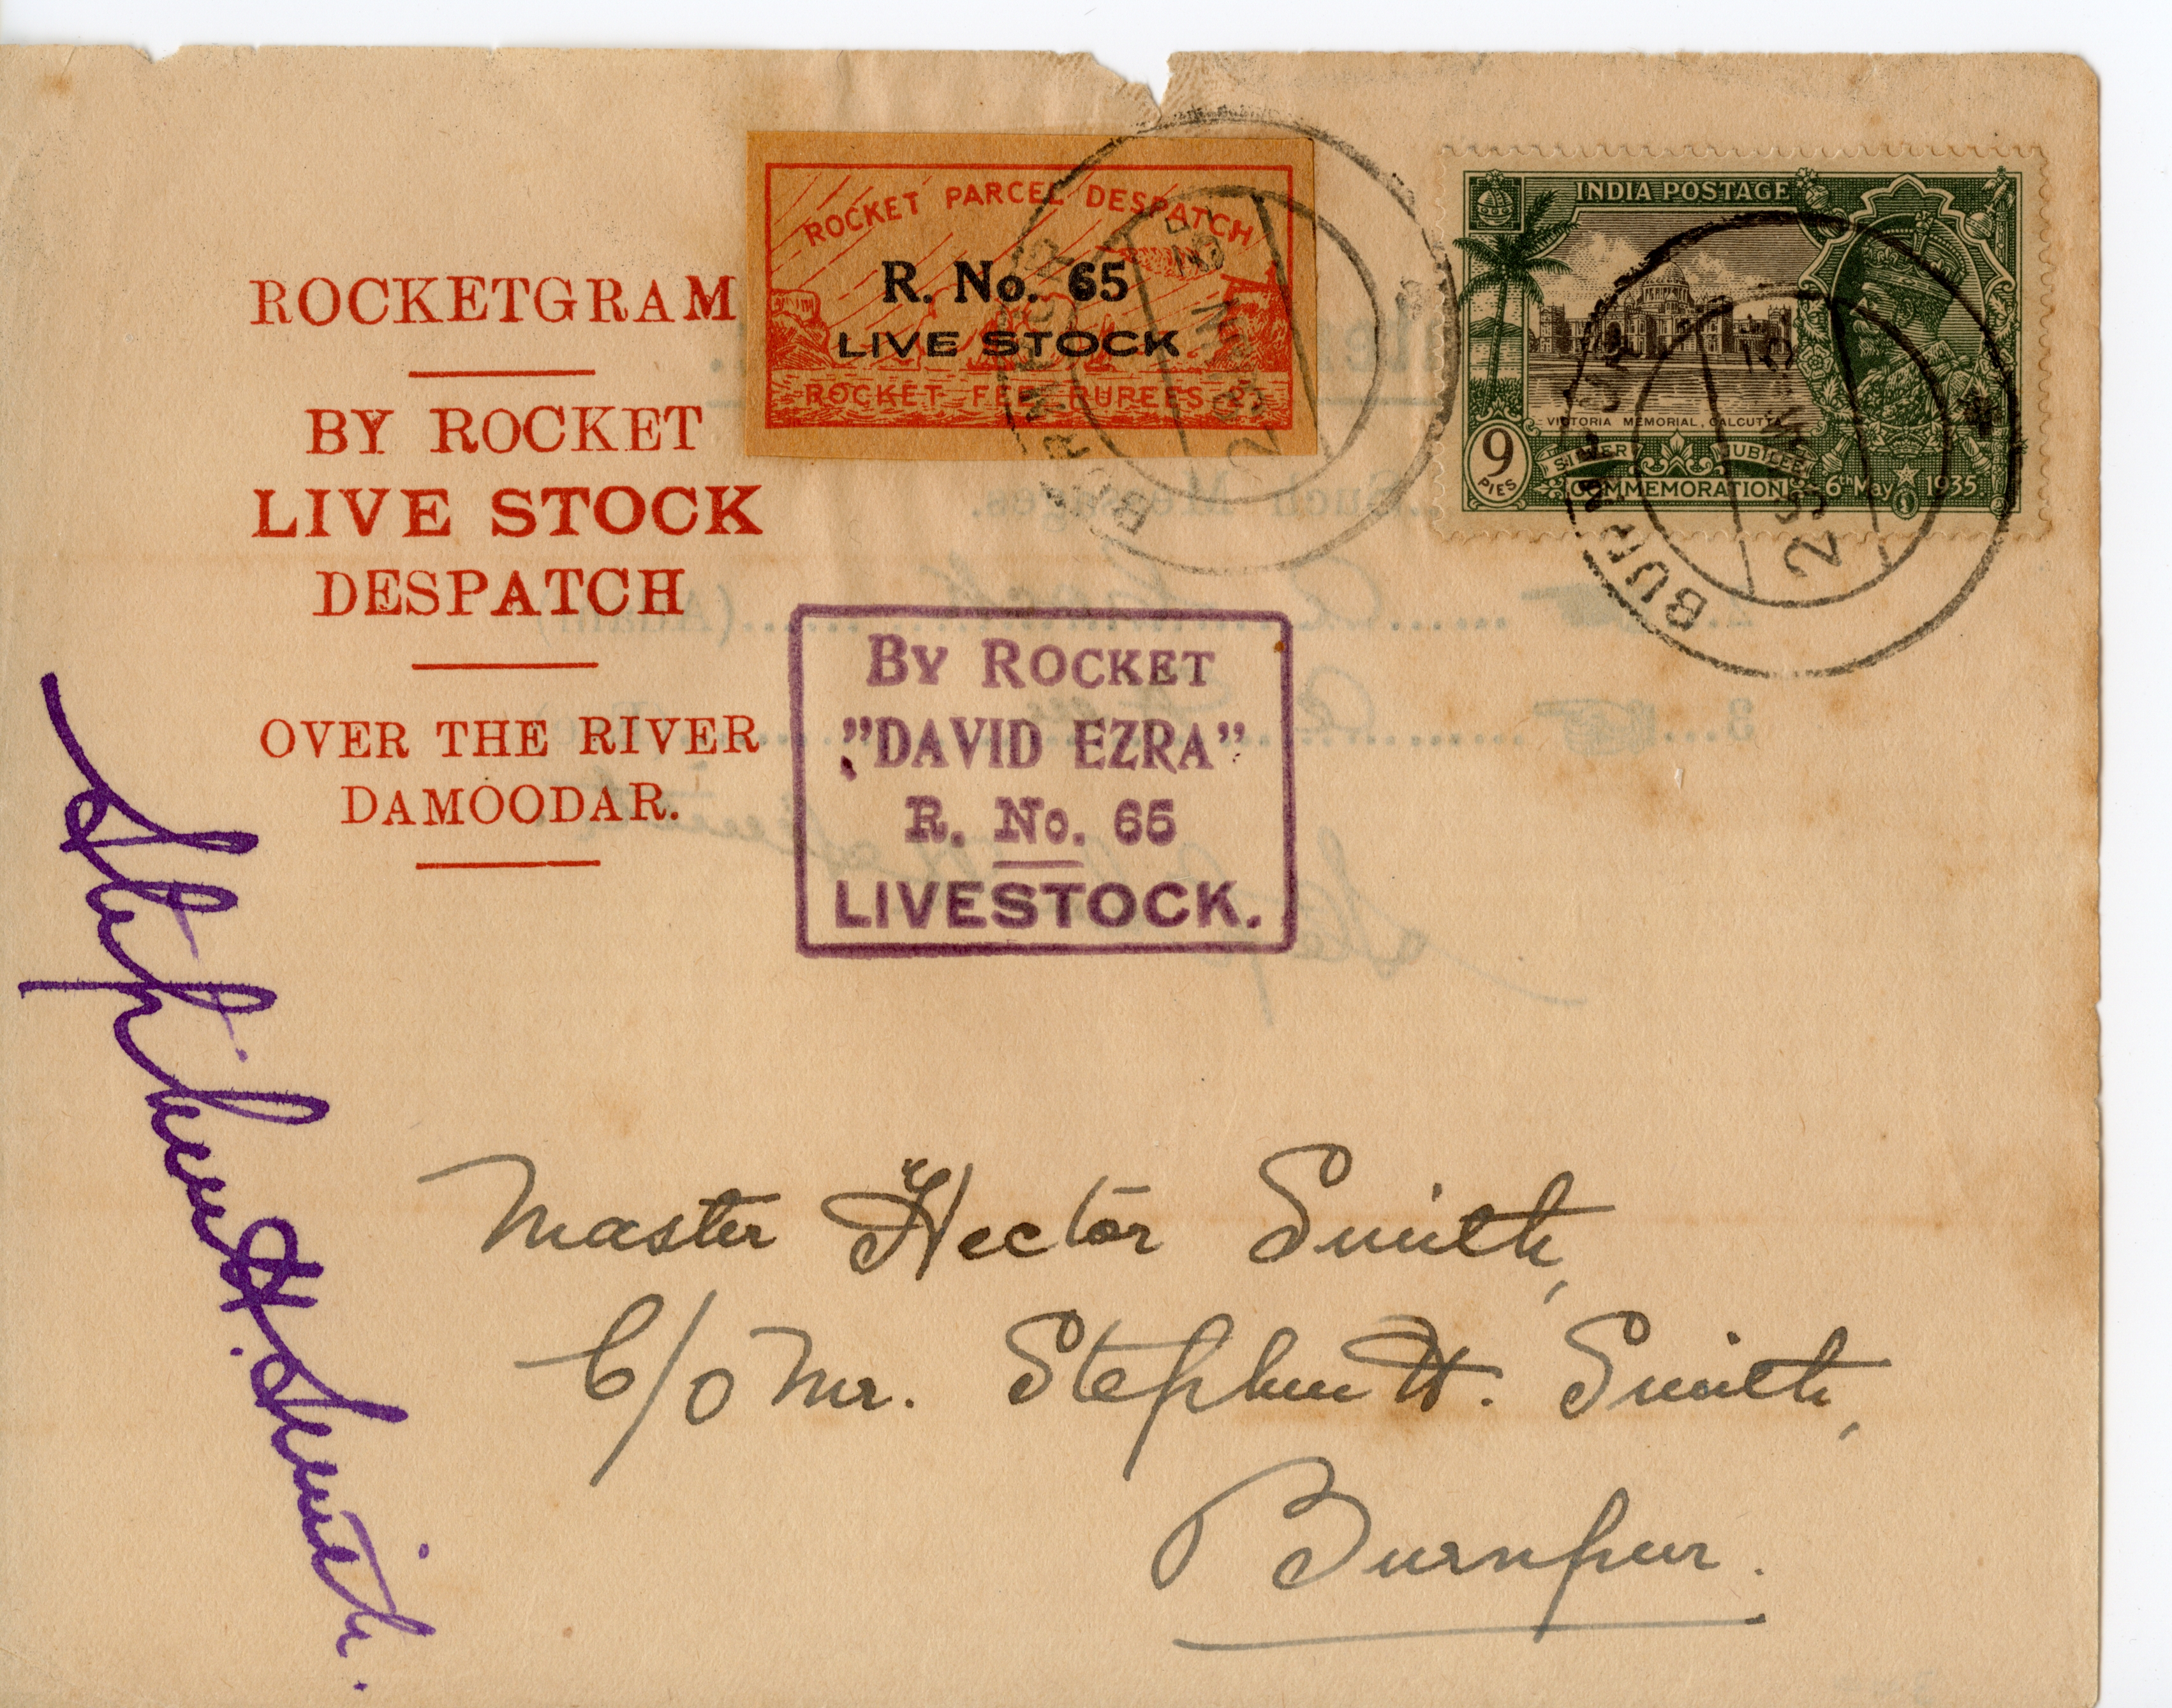 ROCKETGRAM
BY ROCKET
LIVE STOCK
DESPATCH
OVER THE RIVER
DAMOODAR.
ROCKET PARCEL DESPATCH
R. No. 65
LIVE STOCK
ROCKET FEE RUPEES 2
INDIA POSTAGE
VICTORIA MEMORIAL, CALCUTTA
9
PIES
SILVER JUBILEE
COMMEMORATION
6th May 1935.
BURNPUR
29
BURNPUR
29
By Rocket
"DAVID EZRA"
R. No. 65
LIVESTOCK.
Stephen H. Smith.
Master Hector Smith,
C/o Mr. Stephen H. Smith,
Burnpur.